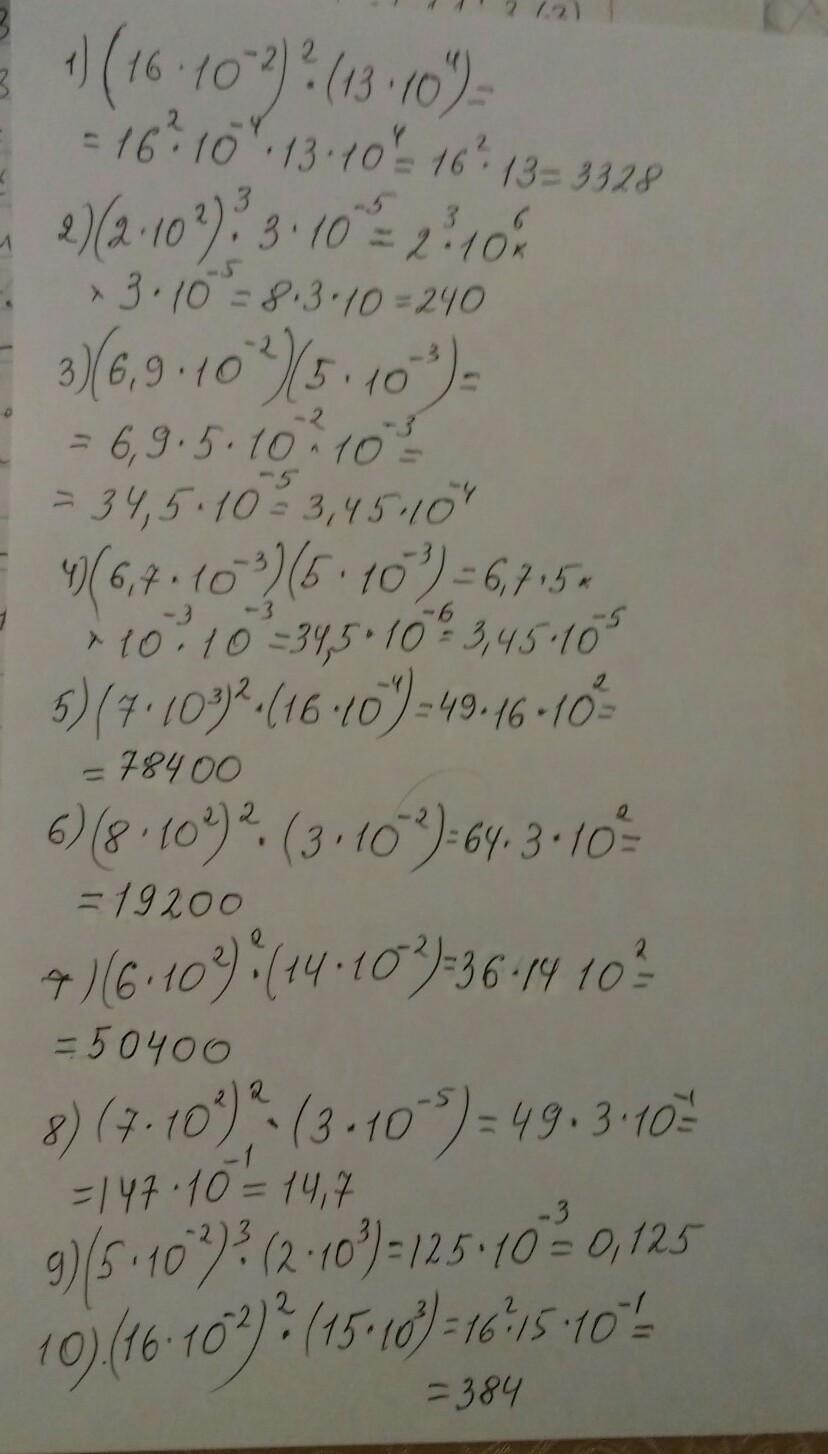 1) (16 · 10⁻²)² · (13 · 10⁴) =
= 16² · 10⁻⁴ · 13 · 10⁴ = 16² · 13 = 3328
2) (2 · 10²)³ · 3 · 10⁻⁵ = 2³ · 10⁶ ×
× 3 · 10⁻⁵ = 8 · 3 · 10 = 240
3) (6,9 · 10⁻²)(5 · 10⁻³) =
= 6,9 · 5 · 10⁻² · 10⁻³ =
= 34,5 · 10⁻⁵ = 3,45 · 10⁻⁴
4) (6,7 · 10⁻³)(5 · 10⁻³) = 6,7 · 5 ×
× 10⁻³ · 10⁻³ = 34,5 · 10⁻⁶ = 3,45 · 10⁻⁵
5) (7 · 10³)² · (16 · 10⁻⁴) = 49 · 16 · 10² =
= 78400
6) (8 · 10²)² · (3 · 10⁻²) = 64 · 3 · 10² =
= 19200
7) (6 · 10²)² · (14 · 10⁻²) = 36 · 14 10² =
= 50400
8) (7 · 10²)² · (3 · 10⁻⁵) = 49 · 3 · 10⁻¹ =
= 147 · 10⁻¹ = 14,7
9) (5 · 10⁻²)³ · (2 · 10³) = 125 · 10⁻³ = 0,125
10). (16 · 10⁻²)² · (15 · 10³) = 16² · 15 · 10⁻¹ =
= 384